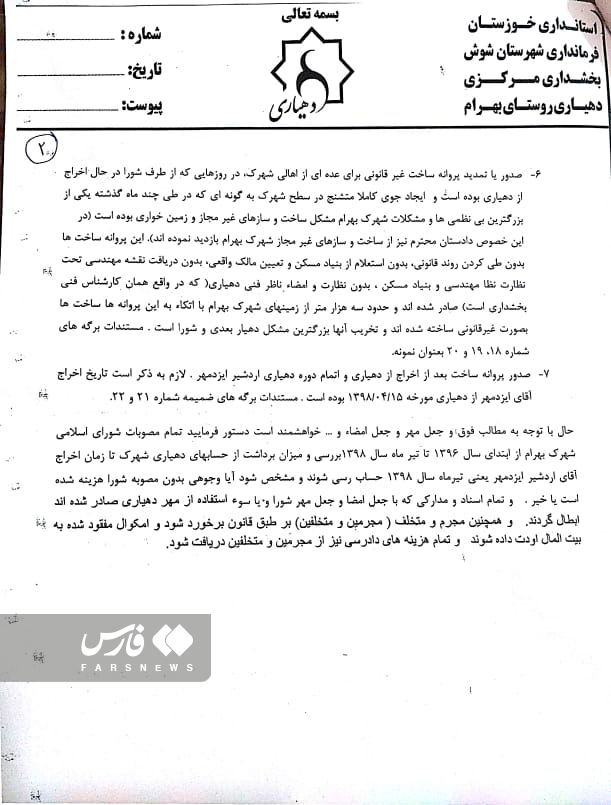 بسمه تعالی
استانداری خوزستان
فرمانداری شهرستان شوش
بخشداری مرکزی
دهیاری روستای بهرام
دهیاری
شماره :
تاریخ:
پیوست:
۲
۶- صدور یا تمدید پروانه ساخت غیر قانونی برای عده ای از اهالی شهرک، در روزهایی که از طرف شورا در حال اخراج
از دهیاری بوده است و ایجاد جوی کاملا متشنج در سطح شهرک به گونه ای که در طی چند ماه گذشته یکی از
بزرگترین بی نظمی ها و مشکلات شهرک بهرام مشکل ساخت و سازهای غیر مجاز و زمین خواری بوده است (در
این خصوص دادستان محترم نیز از ساخت و سازهای غیر مجاز شهرک بهرام بازدید نموده اند). این پروانه ساخت ها
بدون طی کردن روند قانونی، بدون استعلام از بنیاد مسکن و تعیین مالک واقعی، بدون دریافت نقشه مهندسی تحت
نظارت نظا مهندسی و بنیاد مسکن ، بدون نظارت و امضاء ناظر فنی دهیاری( که در واقع همان کارشناس فنی
بخشداری است) صادر شده اند و حدود سه هزار متر از زمینهای شهرک بهرام با اتکاء به این پروانه ها ساخت ها
بصورت غیرقانونی ساخته شده اند و تخریب آنها بزرگترین مشکل دهیار بعدی و شورا است . مستندات برگه های
شماره ۱۸، ۱۹ و ۲۰ بعنوان نمونه.
۷- صدور پروانه ساخت بعد از اخراج از دهیاری و اتمام دوره دهیاری اردشیر ایزدمهر . لازم به ذکر است تاریخ اخراج
آقای ایزدمهر از دهیاری مورخه ۱۳۹۸/۰۴/۱۵ بوده است . مستندات برگه های ضمیمه شماره ۲۱ و ۲۲.
حال با توجه به مطالب فوق و جعل مهر و جعل امضاء و ... خواهشمند است دستور فرمایید تمام مصوبات شورای اسلامی
شهرک بهرام از ابتدای سال ۱۳۹۶ تا تیر ماه سال ۱۳۹۸بررسی و میزان برداشت از حسابهای دهیاری شهرک تا زمان اخراج
آقای اردشیر ایزدمهر یعنی تیرماه سال ۱۳۹۸ حساب رسی شوند و مشخص شود آیا وجوهی بدون مصوبه شورا هزینه شده
است یا خیر . و تمام اسناد و مدارکی که با جعل امضا و جعل مهر شورا و یا سوء استفاده از مهر دهیاری صادر شده اند
ابطال گردند. و همچنین مجرم و متخلف ( مجرمین و متخلفین) بر طبق قانون برخورد شود و امکوال مفقود شده به
بیت المال اودت داده شوند و تمام هزینه های دادرسی نیز از مجرمین و متخلفین دریافت شود.
فارس
FARSNEWS